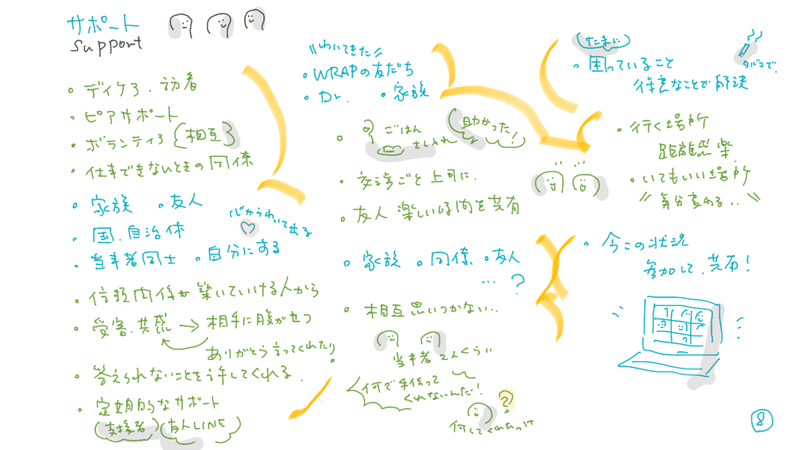 サポート
Support
・ディケア.訪看
・ピアサポート
・ボランティア(相互)
・仕事できないときの関係
・家族 ・友人
・国.自治体
・当事者同士 ・自分にする
心からわいて出る
・信頼関係が築いていける人から
・受容.共感 → 相手に腹が立つ
ありがとう言ってくれたり
・答えられないことを許してくれる.
・定期的なサポート
(支援者)(友人LINE)
〃わいてきた〃
・WRAPの友だち
・Dr. ・家族
・ごはん
助かった!
・交渉ごと上司に.
・友人 楽しい時間を共有
・家族 ・同僚 ・友人
…?
・相互思いつかない..
当事者
何で手伝って
くれないんだ!
?
たまに
・困っていること
得意なことで解決
タバコで.
・行く場所
距離感.楽.
・いてもいい場所
・今この状況
参加して.共有!
8